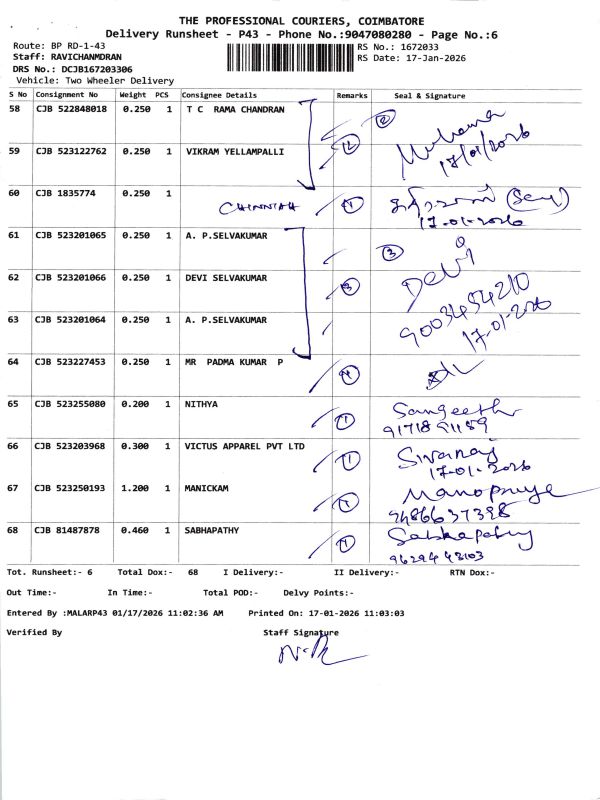 THE PROFESSIONAL COURIERS, COIMBATORE
Delivery Runsheet - P43 - Phone No.:9047080280 - Page No.:6
Route: BP RD-1-43
Staff: RAVICHANMDRAN
DRS No.: DCJB167203306
Vehicle: Two Wheeler Delivery
RS No.: 1672033
RS Date: 17-Jan-2026
S No Consignment No Weight PCS Consignee Details Remarks Seal & Signature
58 CJB 522848018 0.250 1 T C RAMA CHANDRAN 2
59 CJB 523122762 0.250 1 VIKRAM YELLAMPALLI 17/01/2026
60 CJB 1835774 0.250 1 CHINNIAH 1
17-01-2026
61 CJB 523201065 0.250 1 A. P.SELVAKUMAR 3 DEVI
62 CJB 523201066 0.250 1 DEVI SELVAKUMAR 3 9003454210
63 CJB 523201064 0.250 1 A. P.SELVAKUMAR 17-01-2026
64 CJB 523227453 0.250 1 MR PADMA KUMAR P
65 CJB 523255080 0.200 1 NITHYA 1 Sangeeth
66 CJB 523203968 0.300 1 VICTUS APPAREL PVT LTD 1 Sivaraj
17-01-2026
67 CJB 523250193 1.200 1 MANICKAM 1
9486637398
68 CJB 81487878 0.460 1 SABHAPATHY 1 Sabhapathy
Tot. Runsheet:- 6 Total Dox:- 68 I Delivery:- II Delivery:- RTN Dox:-
Out Time:- In Time:- Total POD:- Delvy Points:-
Entered By :MALARP43 01/17/2026 11:02:36 AM Printed On: 17-01-2026 11:03:03
Verified By Staff Signature